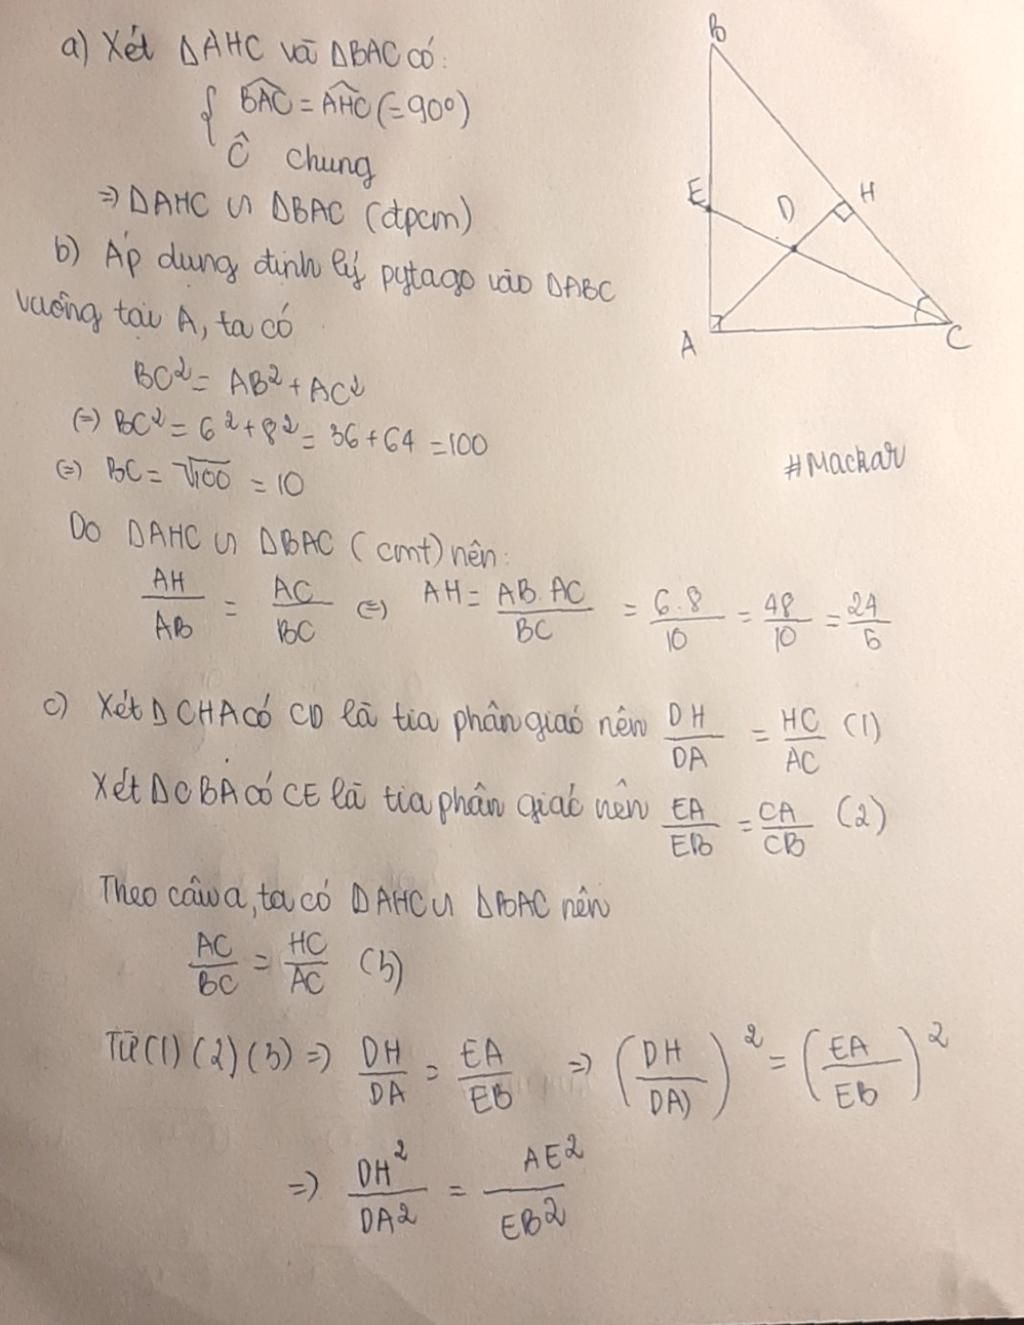 a) Xét ΔAHC và ΔBAC có:
{ BAC = AHC (=90°)
Ĉ chung
=> ΔAHC ∽ ΔBAC (đpcm)
b) Áp dụng định lý pytago vào ΔABC
vuông tại A, ta có
BC² = AB² + AC²
(=) BC² = 6² + 8² = 36 + 64 = 100
(=) BC = √100 = 10
Do ΔAHC ∽ ΔBAC (cmt) nên:
AH/AB = AC/BC (=) AH = AB.AC/BC = 6.8/10 = 48/10 = 24/5
c) Xét ΔCHA có CD là tia phân giác nên DH/DA = HC/AC (1)
Xét ΔCBA có CE là tia phân giác nên EA/EB = CA/CB (2)
Theo câu a, ta có ΔAHC ∽ ΔBAC nên
AC/BC = HC/AC (3)
Từ (1) (2) (3) => DH/DA = EA/EB => (DH/DA)² = (EA/EB)²
=> DH²/DA² = AE²/EB²
B
E
D
H
A
C
#Mackar